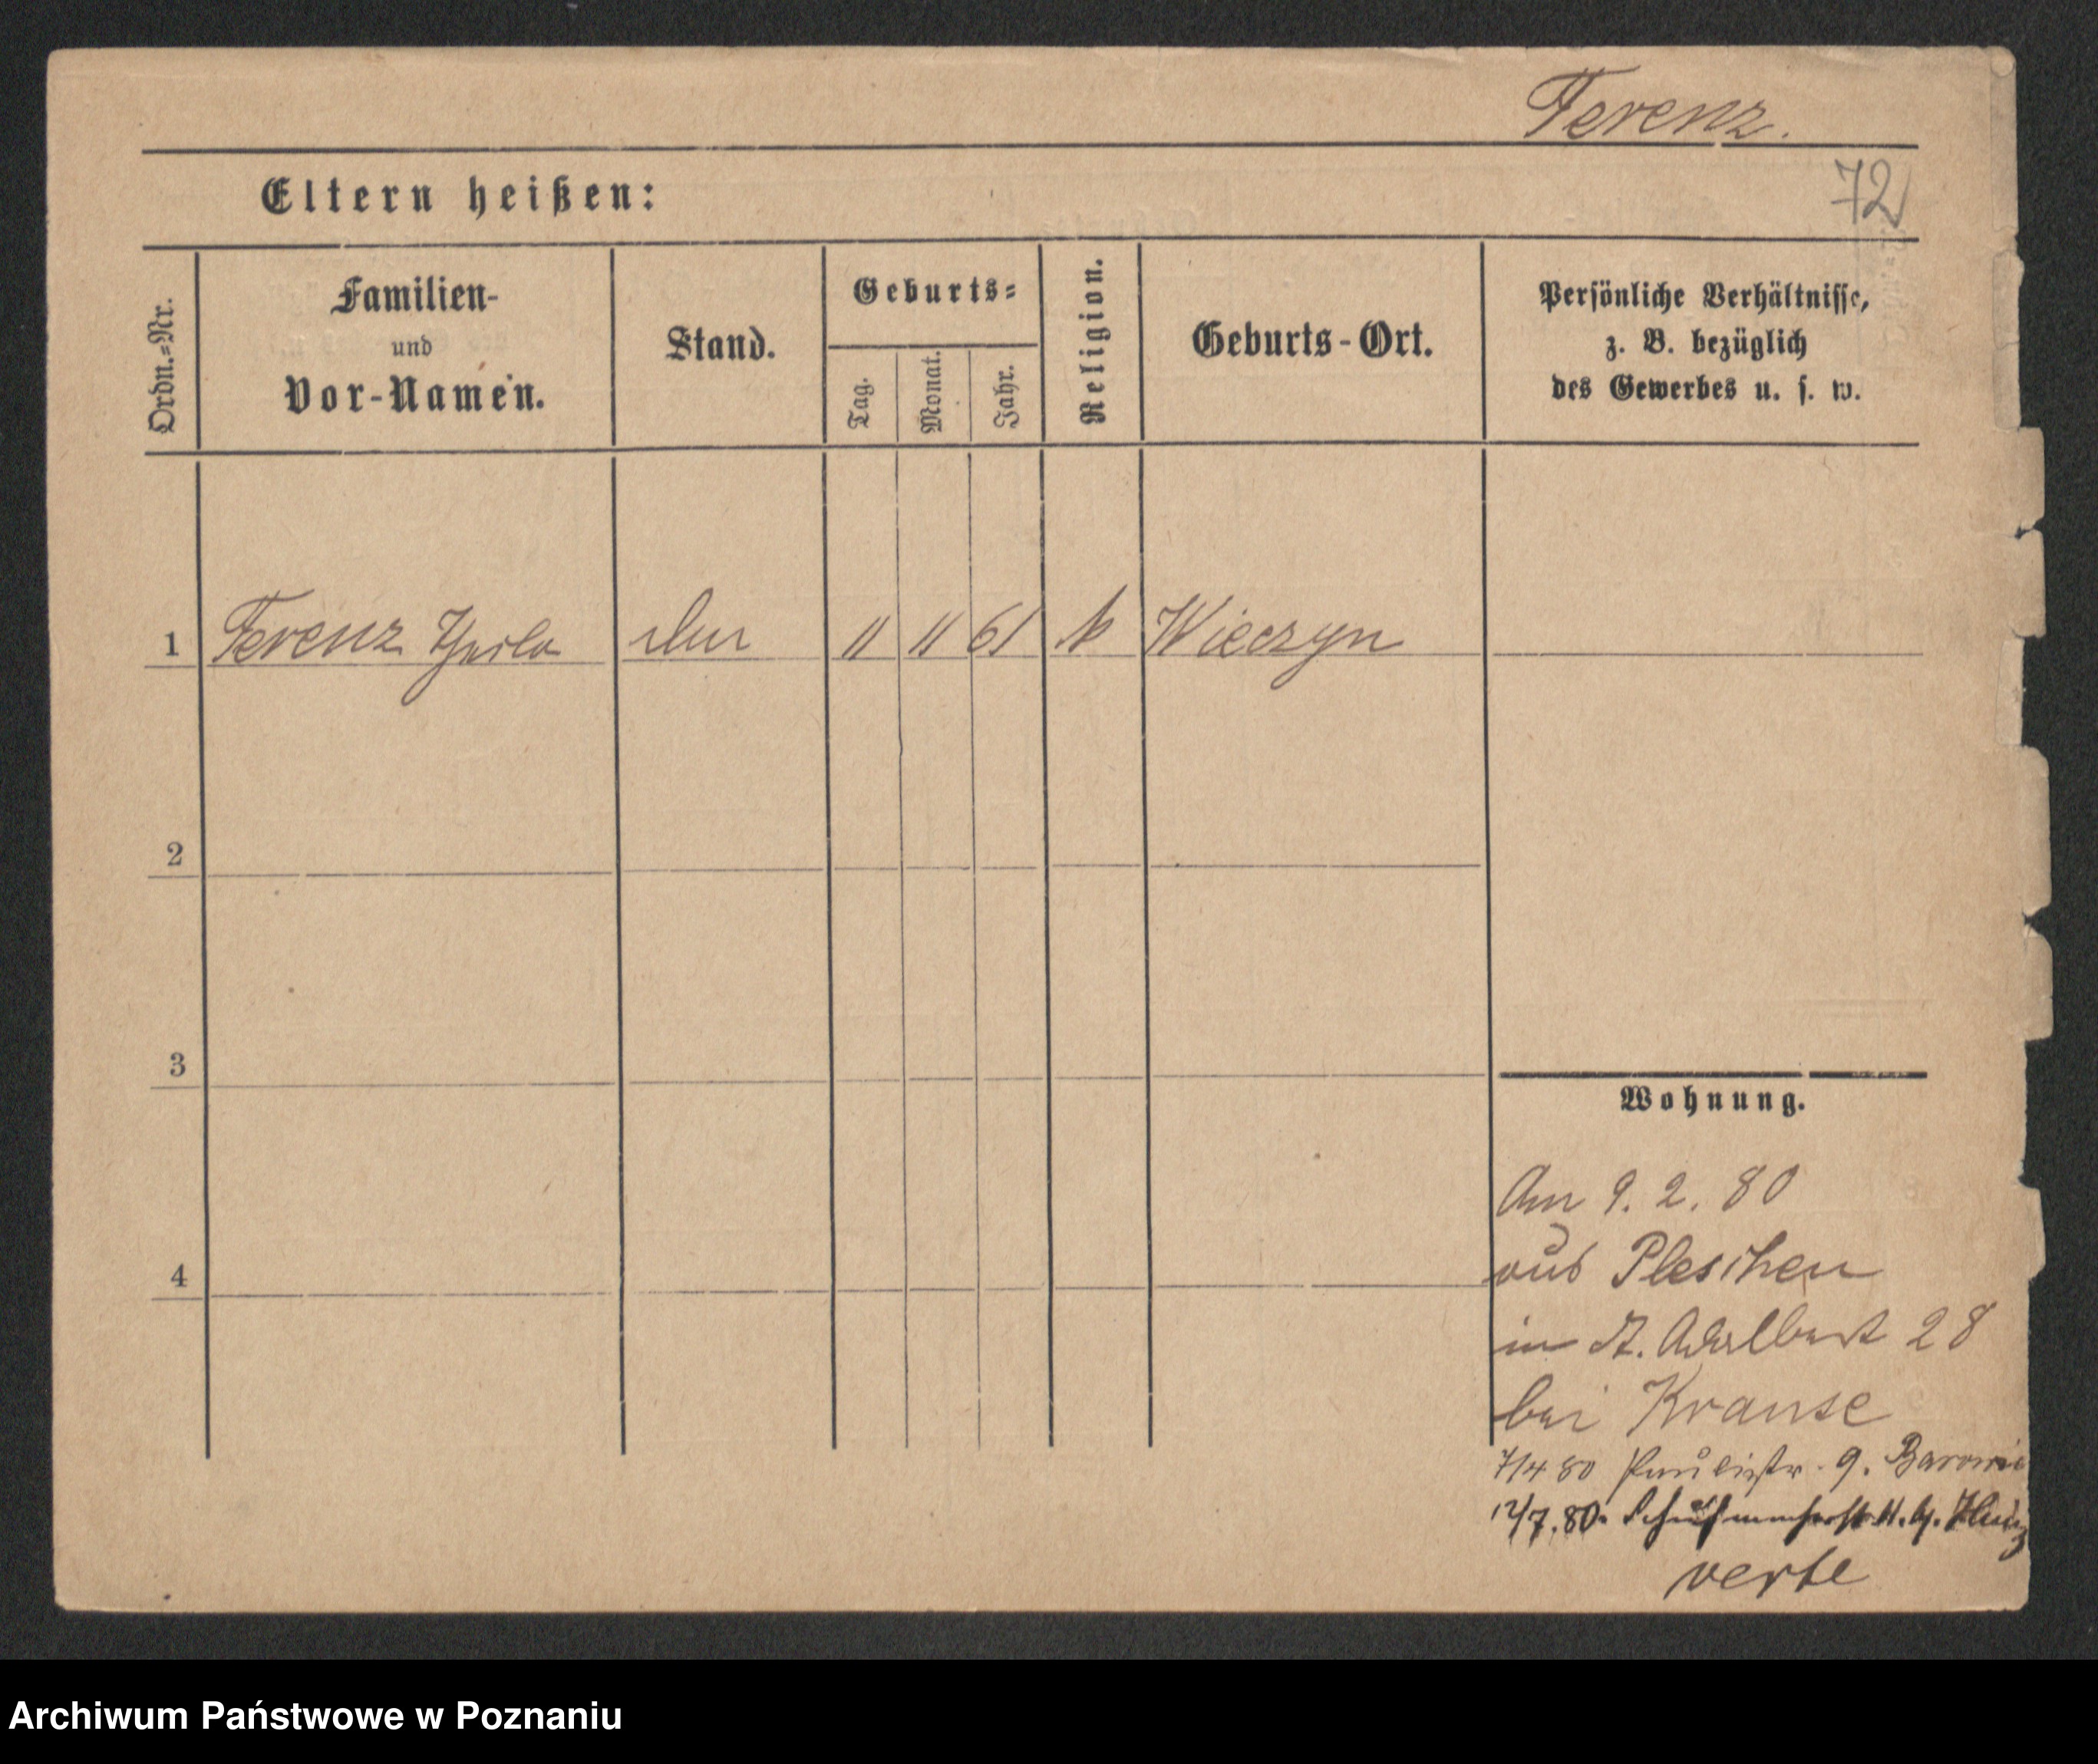 Ferenz.
72
Eltern heißen:
Ordn.=Nr.
Familien-
und
Vor-Namen.
Stand.
Geburts=
Tag.
Monat.
Jahr.
Religion.
Geburts-Ort.
Persönliche Verhältnisse,
z. B. bezüglich
des Gewerbes u. s. w.
1 Ferenz 11 11 61 k Wieczyn
2
3
4
Wohnung.
Am 9. 2. 80
aus Pleschen
in St. Adalbert 28
bei Krause
7/4 80 Paulistr. 9.
12/7. 80.
verte
Archiwum Państwowe w Poznaniu